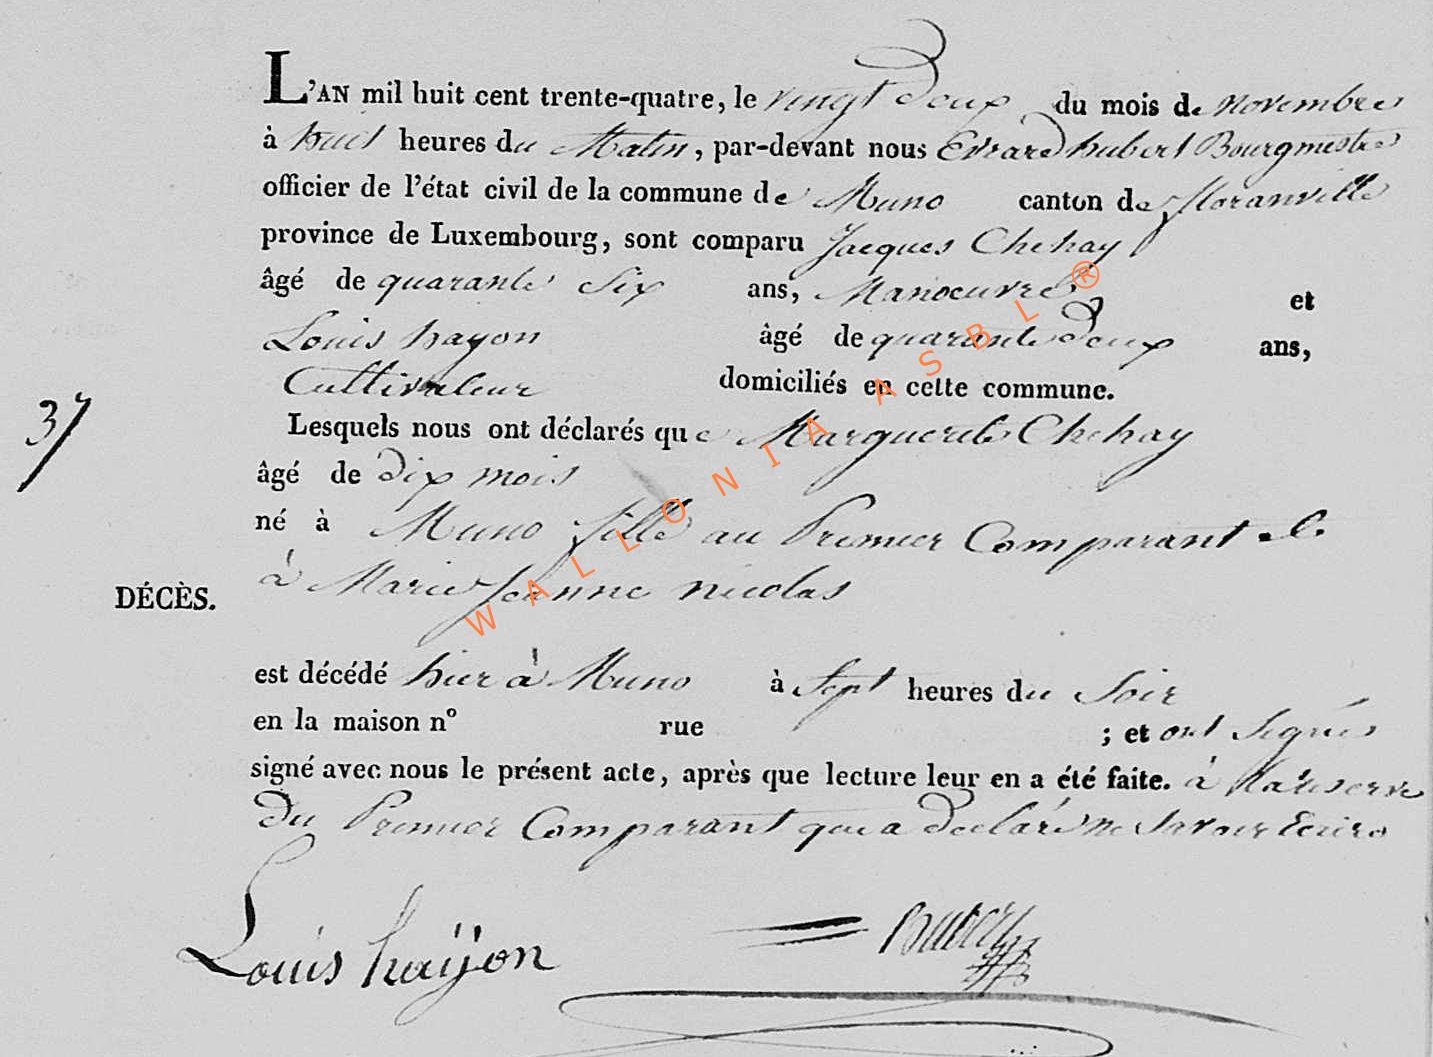 L'AN mil huit cent trente-quatre, le vingt deux du mois de novembre
à huit heures du Matin, par-devant nous Evrard hubert Bourgmestre
officier de l'état civil de la commune de Muno canton de floranville
province de Luxembourg, sont comparu Jacques Chehay
âgé de quarante Six ans, Manoeuvre et
Louis hayon âgé de quarante deux ans,
Cultivateur domiciliés en cette commune.
37
Lesquels nous ont déclarés que Marguerite Chehay
âgé de dix mois
né à Muno fille au Premier Comparant et
DÉCÈS.
à Marie Jeanne nicolas
est décédé hier à Muno à Sept heures du Soir
en la maison nº rue ; et ont Signés
signé avec nous le présent acte, après que lecture leur en a été faite. à
du Premier Comparant que a declaré ne Savoir Ecrire
Louis haÿon hubert
WALLONIA ASBL ®